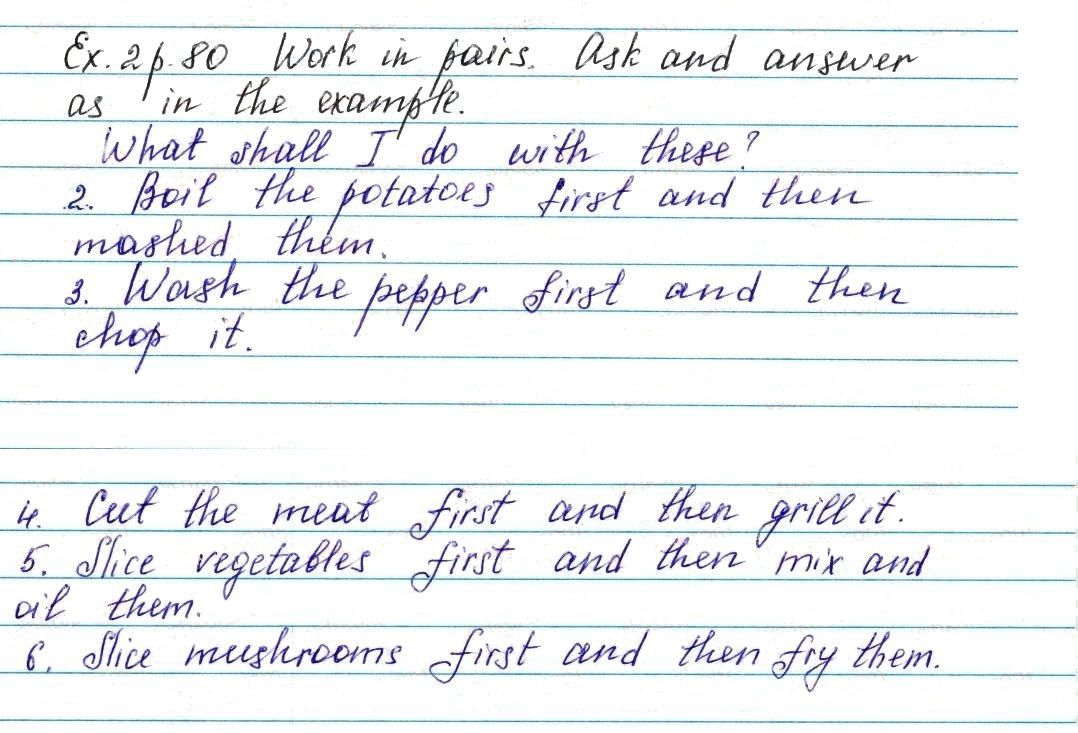 Ex. 2 p. 80 Work in pairs. Ask and answer
as in the example.
What shall I do with these?
2. Boil the potatoes first and then
mashed them.
3. Wash the pepper first and then
chop it.
4. Cut the meat first and then grill it.
5. Slice vegetables first and then mix and
oil them.
6. Slice mushrooms first and then fry them.